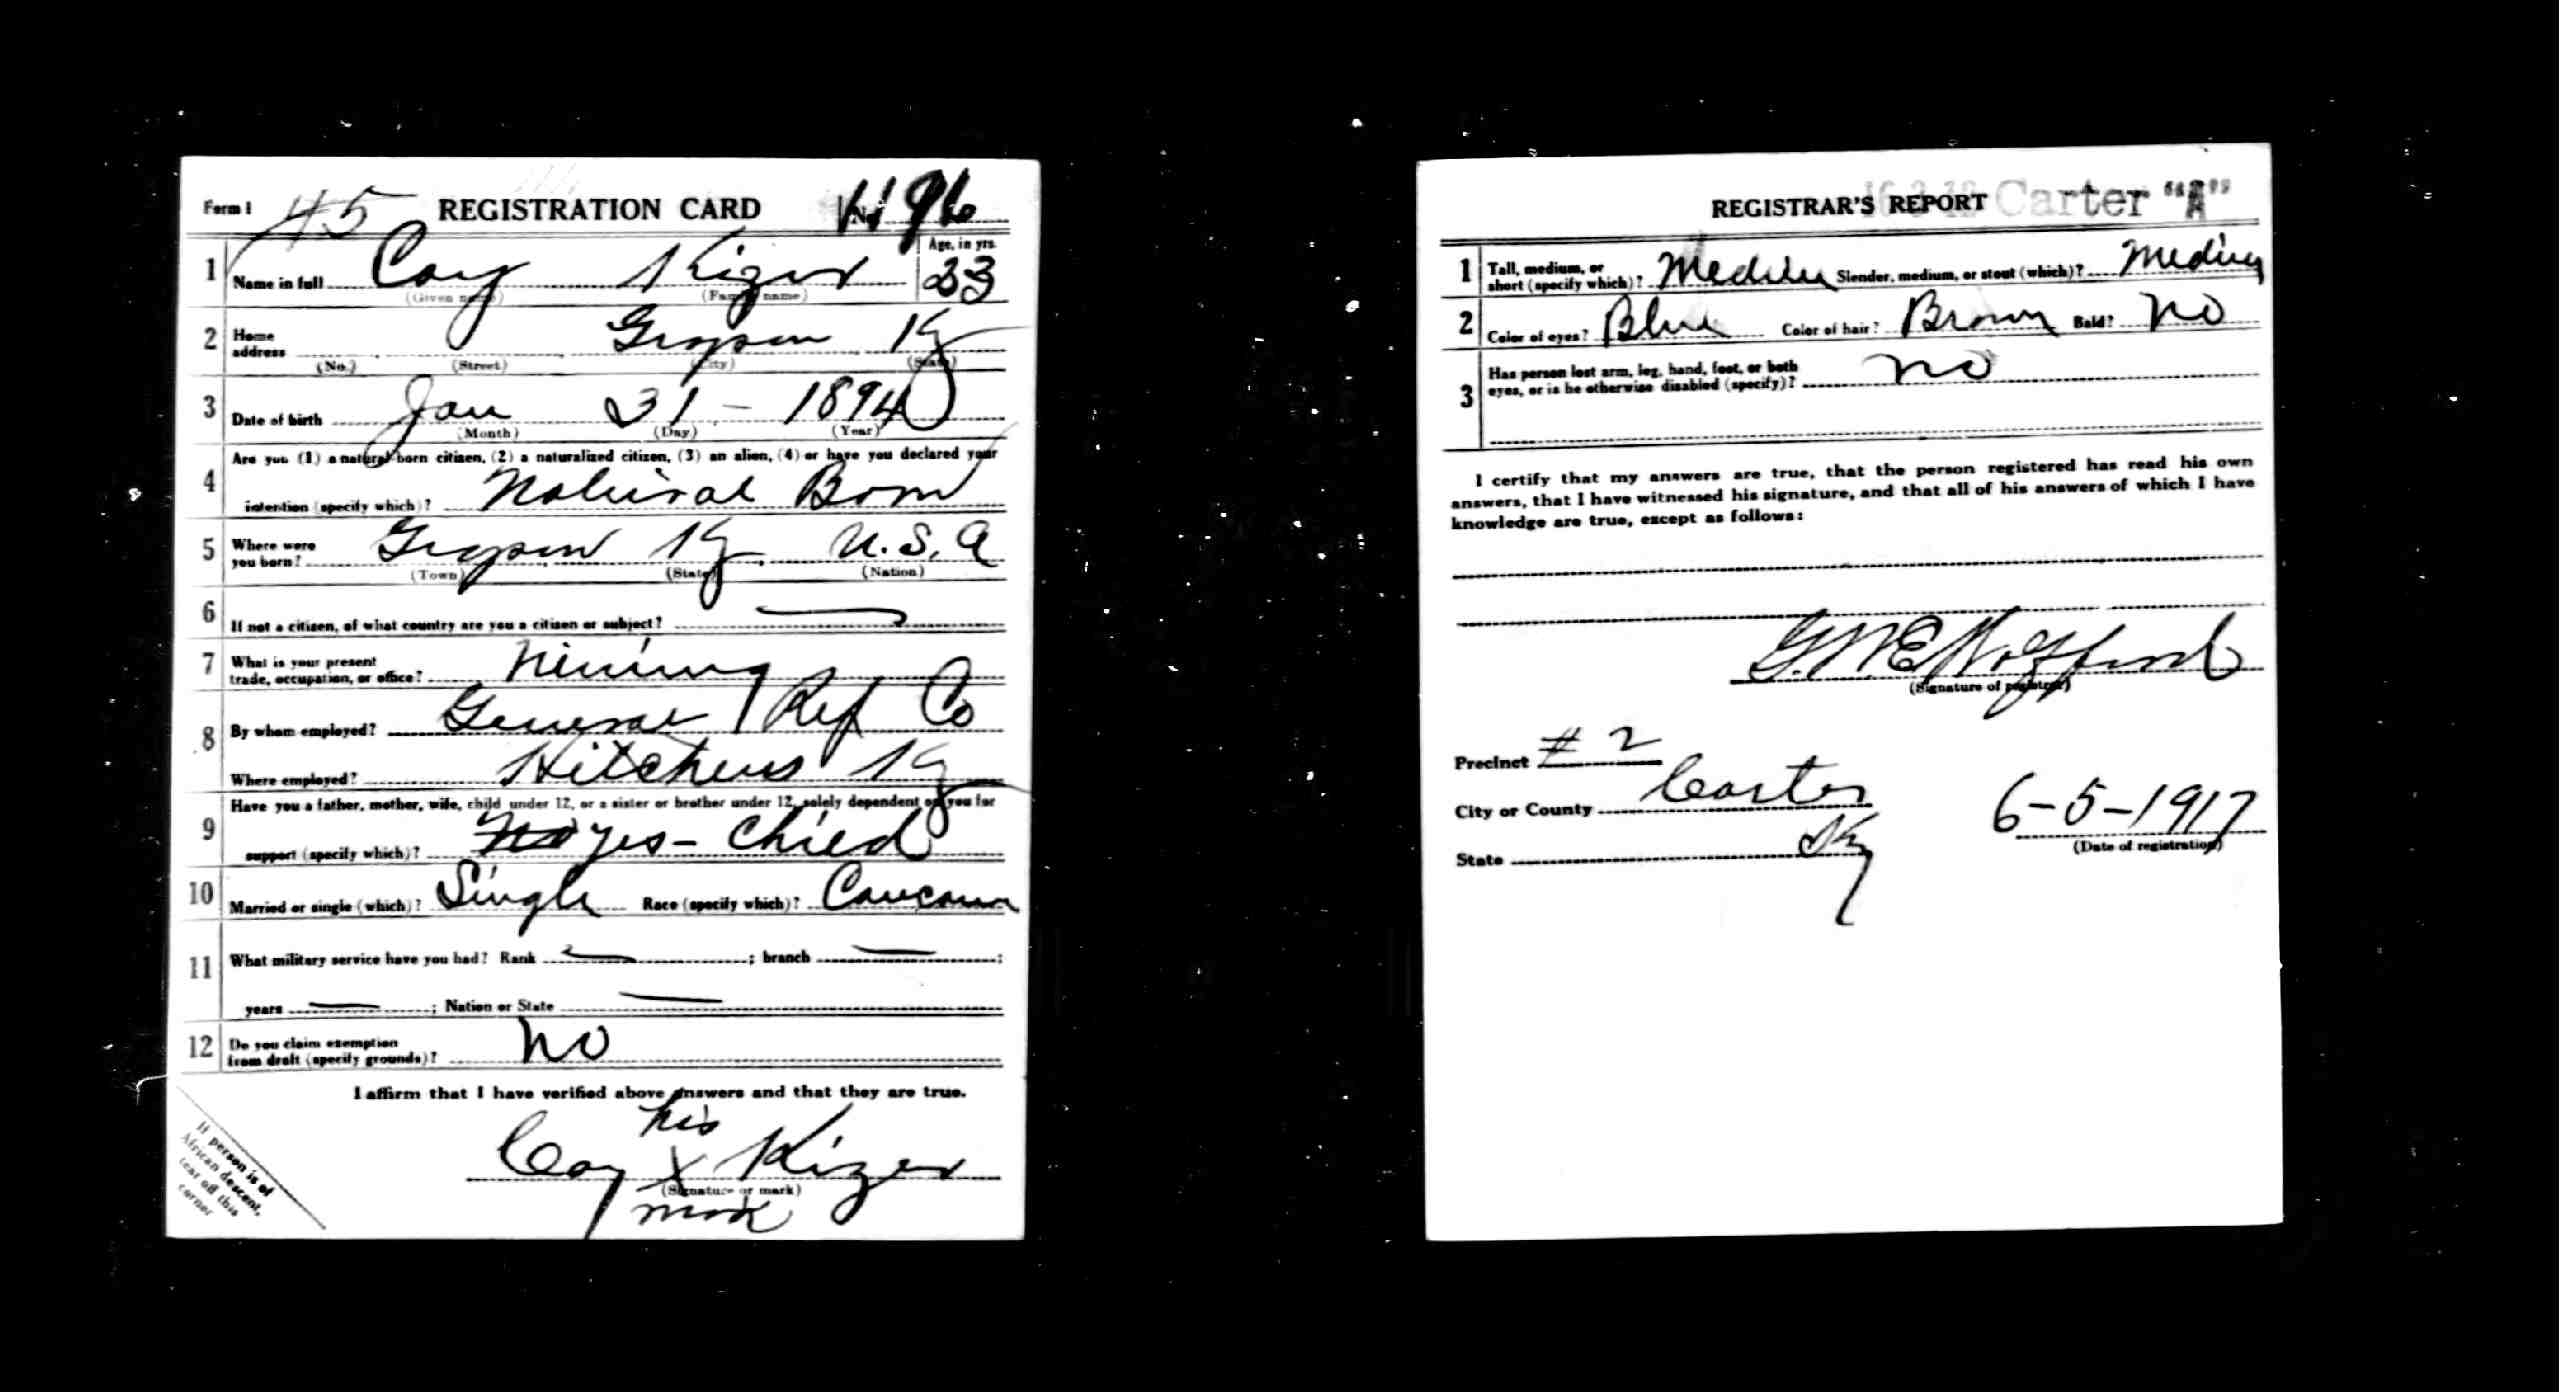 Form 1 45 REGISTRATION CARD No.
1 Name in full Coy Kizer Age, in yrs. 23
(Given name) (Family name)
2 Home address Grayson Ky
(No.) (Street) (City) (State)
3 Date of birth Jan 31 - 1894
(Month) (Day) (Year)
4 Are you (1) a natural-born citizen, (2) a naturalized citizen, (3) an alien, (4) or have you declared your
intention (specify which)? Natural Born
5 Where were you born? Grayson Ky U.S.A
(Town) (State) (Nation)
6 If not a citizen, of what country are you a citizen or subject? —
7 What is your present trade, occupation, or office? Mining
8 By whom employed? General Ref Co
Where employed? Hitchens Ky
9 Have you a father, mother, wife, child under 12, or a sister or brother under 12, solely dependent on you for
support (specify which)? No yes - Child
10 Married or single (which)? Single Race (specify which)? Caucasian
11 What military service have you had? Rank — ; branch — ;
years — ; Nation or State —
12 Do you claim exemption from draft (specify grounds)? No
I affirm that I have verified above answers and that they are true.
his
Coy X Kizer
(Signature or mark)
mark
If person is of
African descent,
tear off this
corner
REGISTRAR'S REPORT Carter "A"
1 Tall, medium, or short (specify which)? Medium Slender, medium, or stout (which)? Medium
2 Color of eyes? Blue Color of hair? Brown Bald? No
3 Has person lost arm, leg, hand, foot, or both eyes, or is he otherwise disabled (specify)? No
I certify that my answers are true, that the person registered has read his own
answers, that I have witnessed his signature, and that all of his answers of which I have
knowledge are true, except as follows:
(Signature of registrar)
Precinct # 2
City or County Carter
State Ky
6-5-1917
(Date of registration)